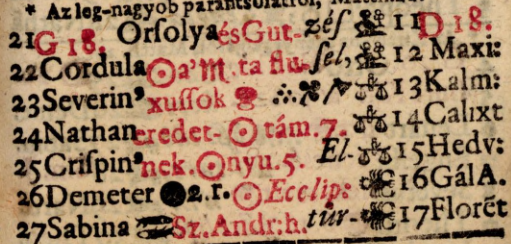 * Az leg-nagyob parantsolatról,
21 G 18. Orsolya és Gut- zés 11 D 18.
22 Cordula ☉ a' ♏. ta flu- sel, 12 Maxi:
23 Severin' xussok 13 Kalm:
24 Nathan eredet- ☉ tám. 7. 14 Calixt
25 Crispin' nek. ☉ nyu. 5. El- 15 Hedv:
26 Demeter ● 2. r. ☉ Ecclip: 16 Gál A.
27 Sabina Sz. Andr: h. tür- 17 Florẽt